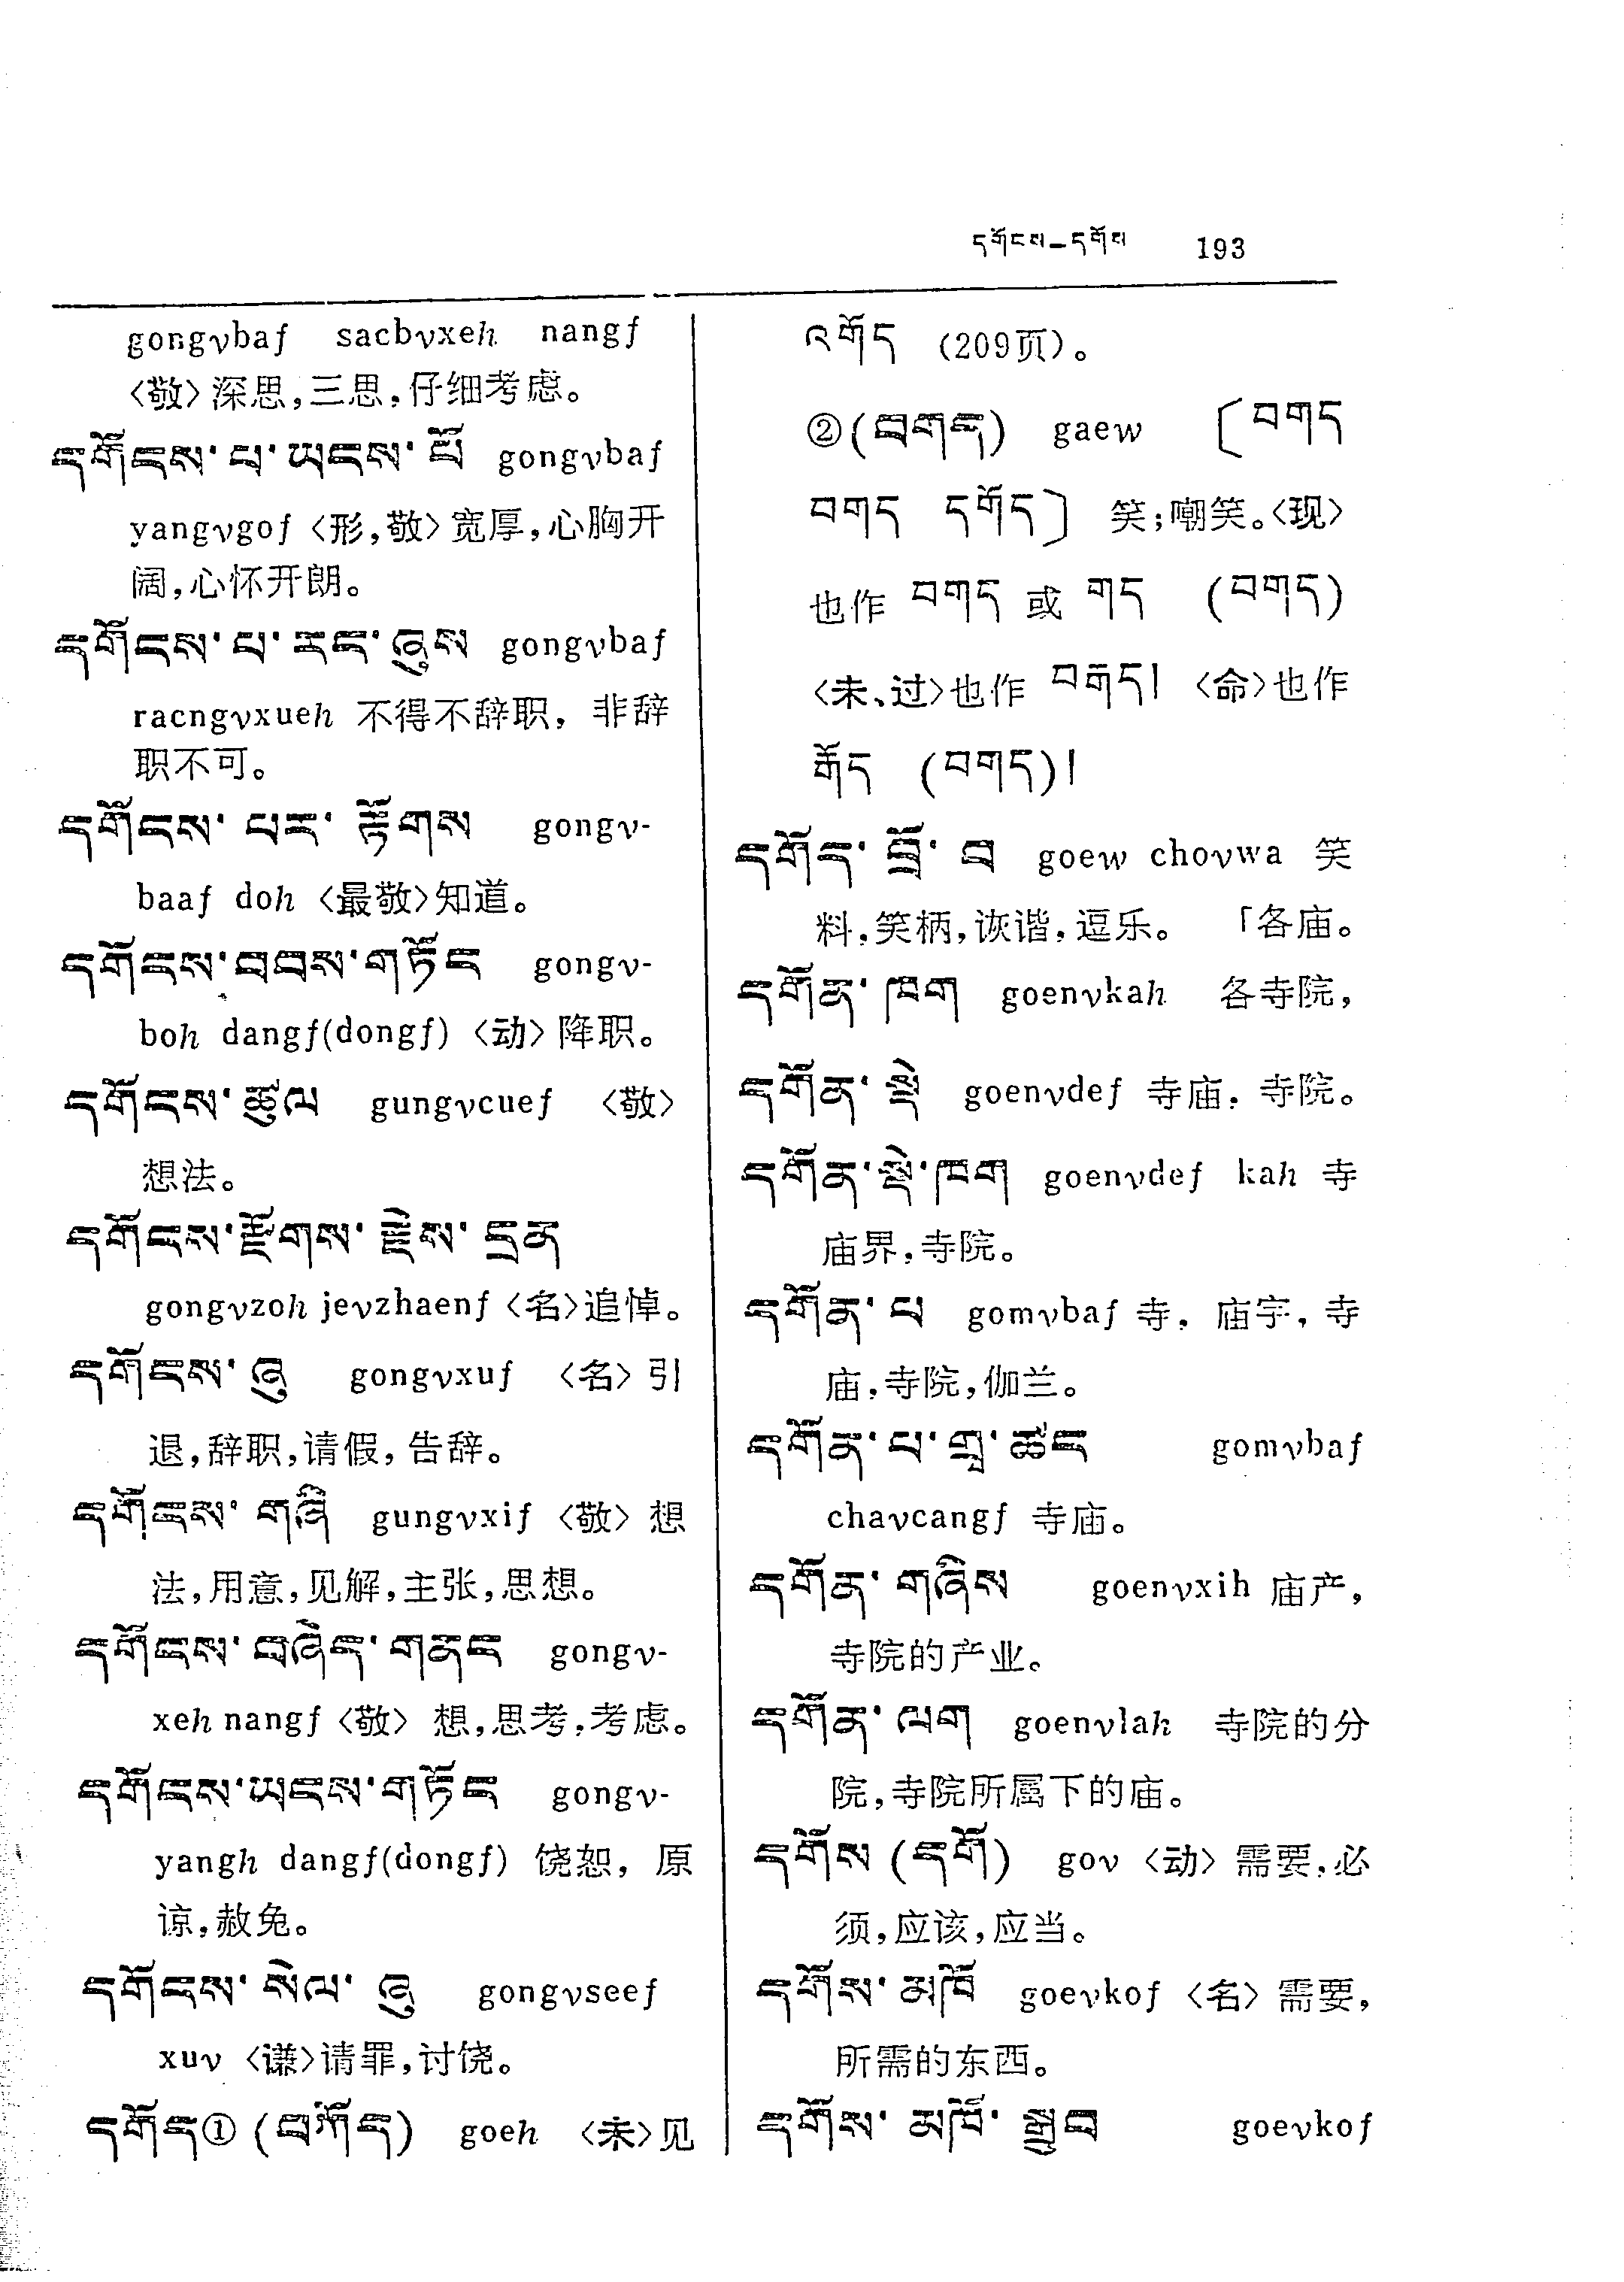 དགོངས—དགོས 193
gongvbaf sacbvxeh nangf
〈敬〉深思,三思,仔细考虑。
དགོངས་པ་ཡངས་པོ gongvbaf
yangvgof 〈形,敬〉宽厚,心胸开
阔,心怀开朗。
དགོངས་པ་རང་ཞུས gongvbaf
racngvxueh 不得不辞职, 非辞
职不可。
དགོངས་པར་རྟོགས gongv-
baaf doh 〈最敬〉知道。
དགོངས་བབས་གཏོང gongv-
boh dangf(dongf) 〈动〉降职。
དགོངས་ཚུལ gungvcuef 〈敬〉
想法。
དགོངས་རྫོགས་རྗེས་དྲན
gongvzoh jevzhaenf 〈名〉追悼。
དགོངས་ཞུ gongvxuf 〈名〉引
退,辞职,请假,告辞。
དགོངས་གཞི gungvxif 〈敬〉想
法,用意,见解,主张,思想。
དགོངས་བཞེད་གནང gongv-
xeh nangf 〈敬〉 想,思考,考虑。
དགོངས་ཡངས་གཏོང gongv-
yangh dangf(dongf) 饶恕, 原
谅,赦免。
དགོངས་སེལ་ཞུ gongvseef
xuv 〈谦〉请罪,讨饶。
དགོད①(བཀོད) goeh 〈未〉见
འགོད (209页)。
②(བགད) gaew 〔བགད
བགད དགོད〕 笑;嘲笑。〈现〉
也作 བགད 或 གད (བགད)
〈未、过〉也作 བགད། 〈命〉也作
གོད (བགད)།
དགོད་བྲོ་བ goew chovwa 笑
料,笑柄,诙谐,逗乐。 「各庙。
དགོན་ཁག goenvkah 各寺院,
དགོན་སྡེ goenvdef 寺庙, 寺院。
དགོན་སྡེ་ཁག goenvdef kah 寺
庙界,寺院。
དགོན་པ gomvbaf 寺, 庙宇, 寺
庙,寺院,伽兰。
དགོན་པ་གྲྭ་ཚང gomvbaf
chavcangf 寺庙。
དགོན་གཞིས goenvxih 庙产,
寺院的产业。
དགོན་ལག goenvlah 寺院的分
院,寺院所属下的庙。
དགོས (དགོ) gov 〈动〉需要,必
须,应该,应当。
དགོས་མཁོ goevkof 〈名〉需要,
所需的东西。
དགོས་མཁོ་སྒྲུབ goevkof